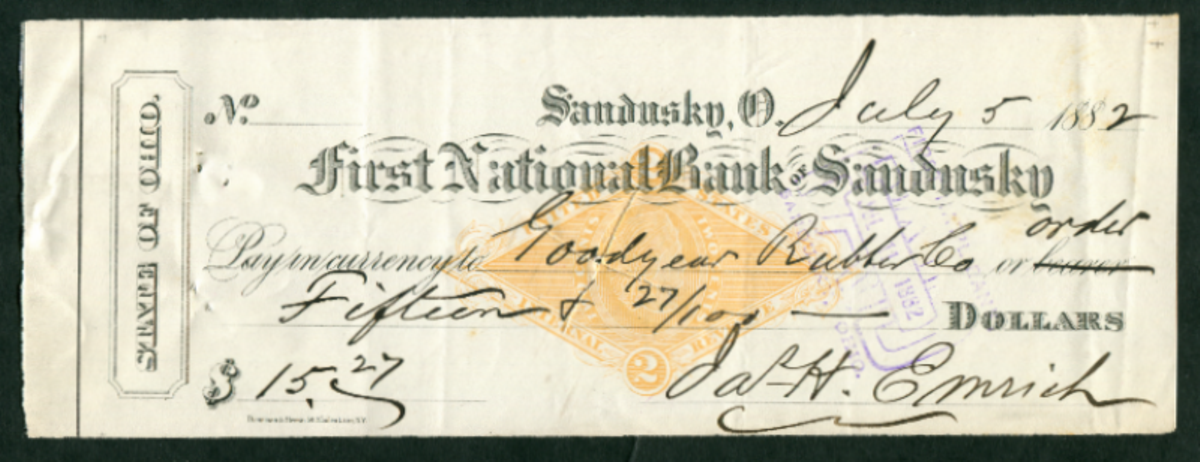 STATE OF OHIO.
No.
Sandusky, O. July 5 1882
First National Bank OF Sandusky
order
Pay in currency to Goodyear Rubber Co or bearer
Fifteen & 27/100 Dollars
$ 15.27
Jas. H. Emrich
UNITED STATES
INTERNAL REVENUE
2
1882